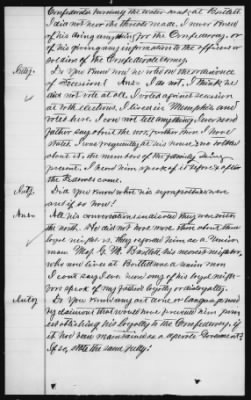 Confederates burning the water tank at Buntait
I did not hear the threats made. I never knew
of his doing anything for the Confederacy, or
of his giving any information to the officers or
soldiers of the Confederate army.
Do you know how he voted on the ordinance
of Secession? Ans: I do not, I think he
did not vote at all. I voted against secession
at both elections, I lived in Memphis and
voted here. I can not tell anything I ever heard
father say about the war, further than I have
stated. I was frequently at his house and so talked
about it, the members of the family being
present. I heard him speak of it before & after
the Federals came.
Did you know what his sympathies were
and if so how?
Ans
All his conversations indicated they were with
the north. He did not have more than about two
loyal neighbors, they regarded him as a Union
man. Maj. G. M. Bartlett his nearest neighbor,
who now lives at was a union man
I can't say I ever knew any of his loyal neigh-
bors speak of my father's loyalty or disloyalty.
Do you know any act done or language used
by claimant that would have prevented him from
establishing his loyalty to the Confederacy, if
it had been maintained as a separate Government?
If so, state the same fully?